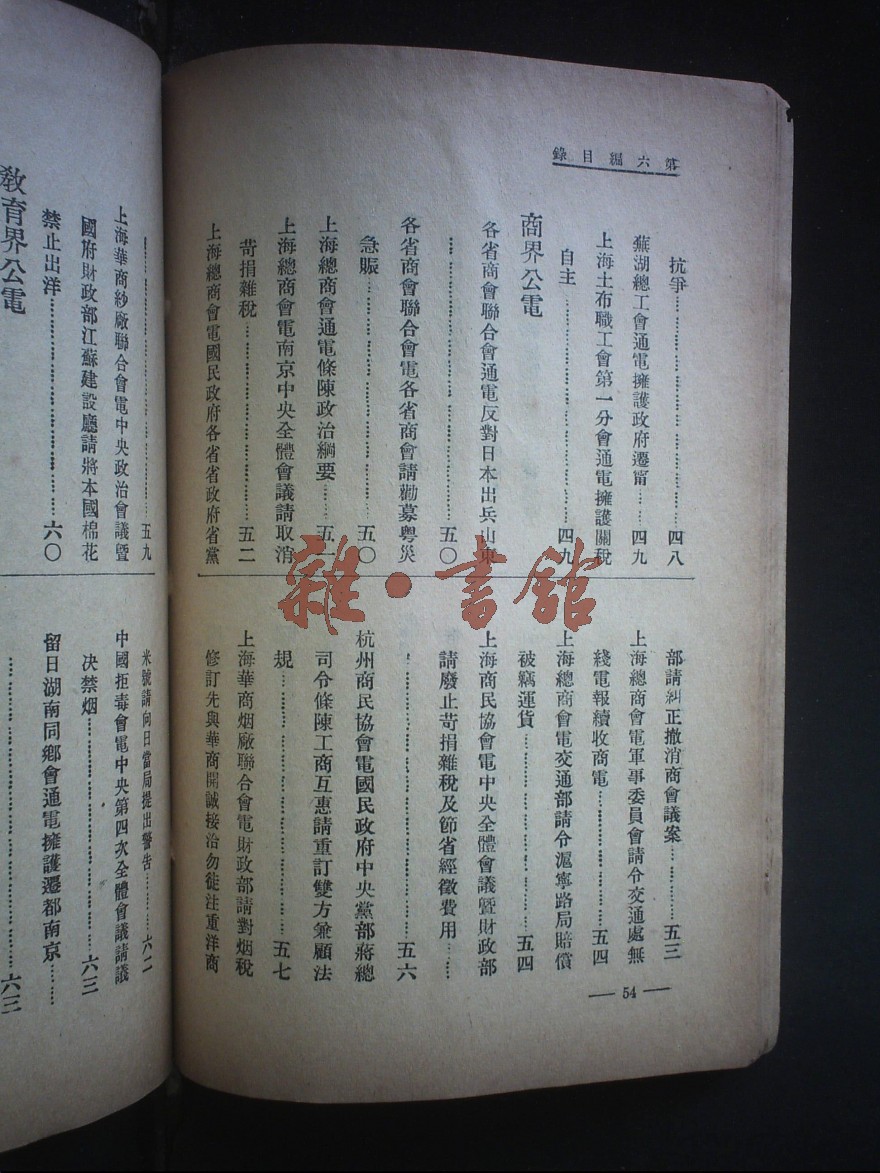 第六編目錄
抗爭……四八
蕪湖總工會通電擁護政府遷甯……四九
上海土布職工會第一分會通電擁護關稅
自主……四九
商界公電
各省商會聯合會通電反對日本出兵山東
……五〇
各省商會聯合會電各省商會請勸募粵災
急賑……五〇
上海總商會通電條陳政治綱要……五一
上海總商會電南京中央全體會議請取消
苛捐雜稅……五二
上海總商會電國民政府各省省政府省黨
部請糾正撤消商會議案……五三
上海總商會電軍事委員會請令交通處無
綫電報續收商電……五四
上海總商會電交通部請令滬寧路局賠償
被竊運貨……五四
上海商民協會電中央全體會議暨財政部
請廢止苛捐雜稅及節省經徵費用……
……五六
杭州商民協會電國民政府中央黨部蔣總
司令條陳工商互惠請重訂雙方兼顧法
規……五七
上海華商烟廠聯合會電財政部請對烟稅
修訂先與華商開誠接洽勿徒注重洋商
— 54 —
……五九
上海華商紗廠聯合會電中央政治會議暨
國府財政部江蘇建設廳請將本國棉花
禁止出洋……六〇
教育界公電
米號請向日當局提出警告……六二
中國拒毒會電中央第四次全體會議請議
決禁烟……六三
留日湖南同鄉會通電擁護遷都南京……
……六三
雜·書館